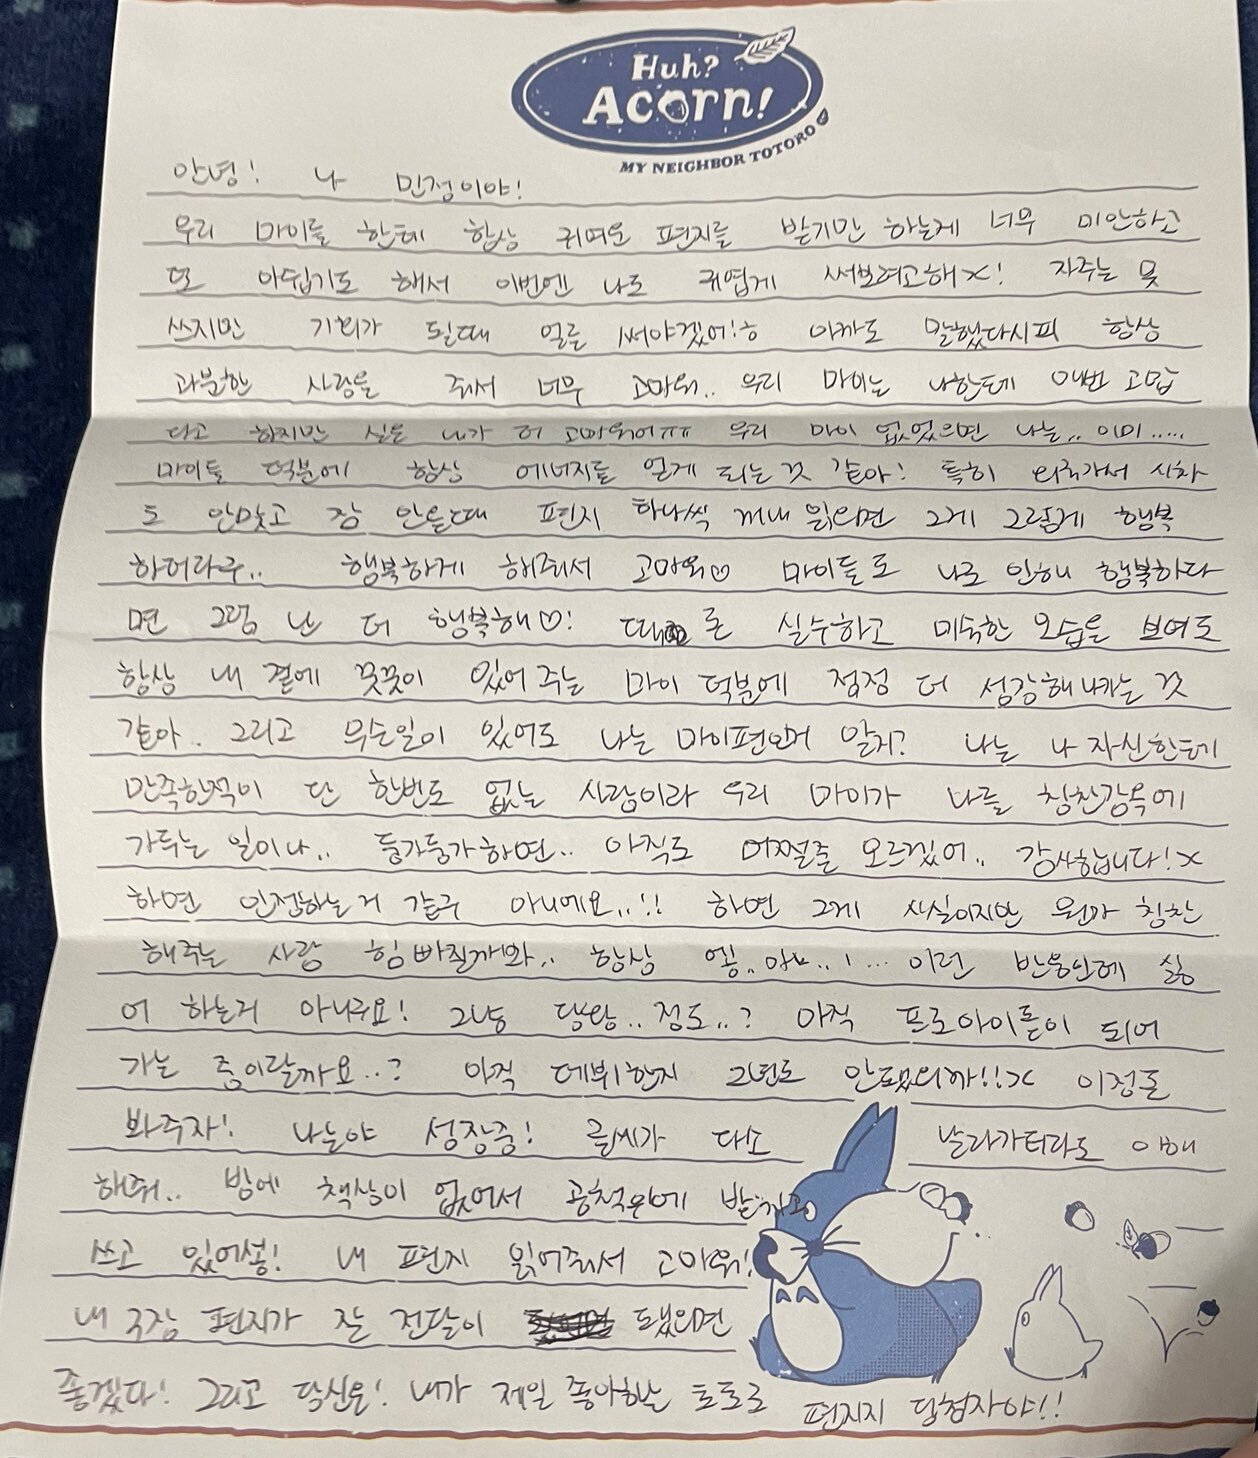 Huh?
Acorn!
MY NEIGHBOR TOTORO
안녕! 나 민정이야!
우리 마이들 한테 항상 귀여운 편지를 받기만 하는게 너무 미안하고
또 아쉽기도 해서 이번엔 나도 귀엽게 써보려고해x! 자주는 못
쓰지만 기회가 될때 얼른 써야겠어!ㅎ 아까도 말했다시피 항상
과분한 사랑을 줘서 너무 고마워.. 우리 마이는 나한테 매번 고맙
다고 하지만 실은 내가 더 고마워어ㅠㅠ 우리 마이 없었으면 나는.. 이미.....
마이들 덕분에 항상 에너지를 얻게 되는 것 같아! 특히 외국가서 시차
도 안맞고 잠 안올때 편지 하나씩 꺼내 읽으면 그게 그렇게 행복
하더라구.. 행복하게 해줘서 고마워♡ 마이들도 나로 인해 행복하다
면 그럼 난 더 행복해♡! 때로 론 실수하고 미숙한 모습을 보여도
항상 내 곁에 꿋꿋이 있어 주는 마이 덕분에 점점 더 성장해 나가는 것
같아. 그리고 무슨일이 있어도 나는 마이편인거 알지? 나는 나 자신한테
만족한적이 단 한번도 없는 사람이라 우리 마이가 나를 칭찬감옥에
가두는 일이나.. 둥가둥가하면.. 아직도 어쩔줄 모르겠어.. 감사합니다!x
하면 인정하는거 같구 아니에요..!! 하면 그게 사실이지만 뭔가 칭찬
해주는 사람 힘 빠질까봐.. 항상 엥.. 아..!... 이런 반응인데 싫
어 하는거 아니구요! 그냥 당황..정도..? 아직 프로아이돌이 되어
가는 중이랄까요..? 아직 데뷔한지 2년도 안됐으니까!!x 이정돈
봐주자! 나는야 성장중! 글씨가 다소 날라가더라도 이해
해줘.. 방에 책상이 없어서 공책위에 받치고
쓰고 있어성! 내 편지 읽어줘서 고마워!
내 국장 편지가 잘 전달이 됐으면
좋겠다! 그리고 당신은! 내가 제일 좋아하는 토토로 편지지 당첨자야!!